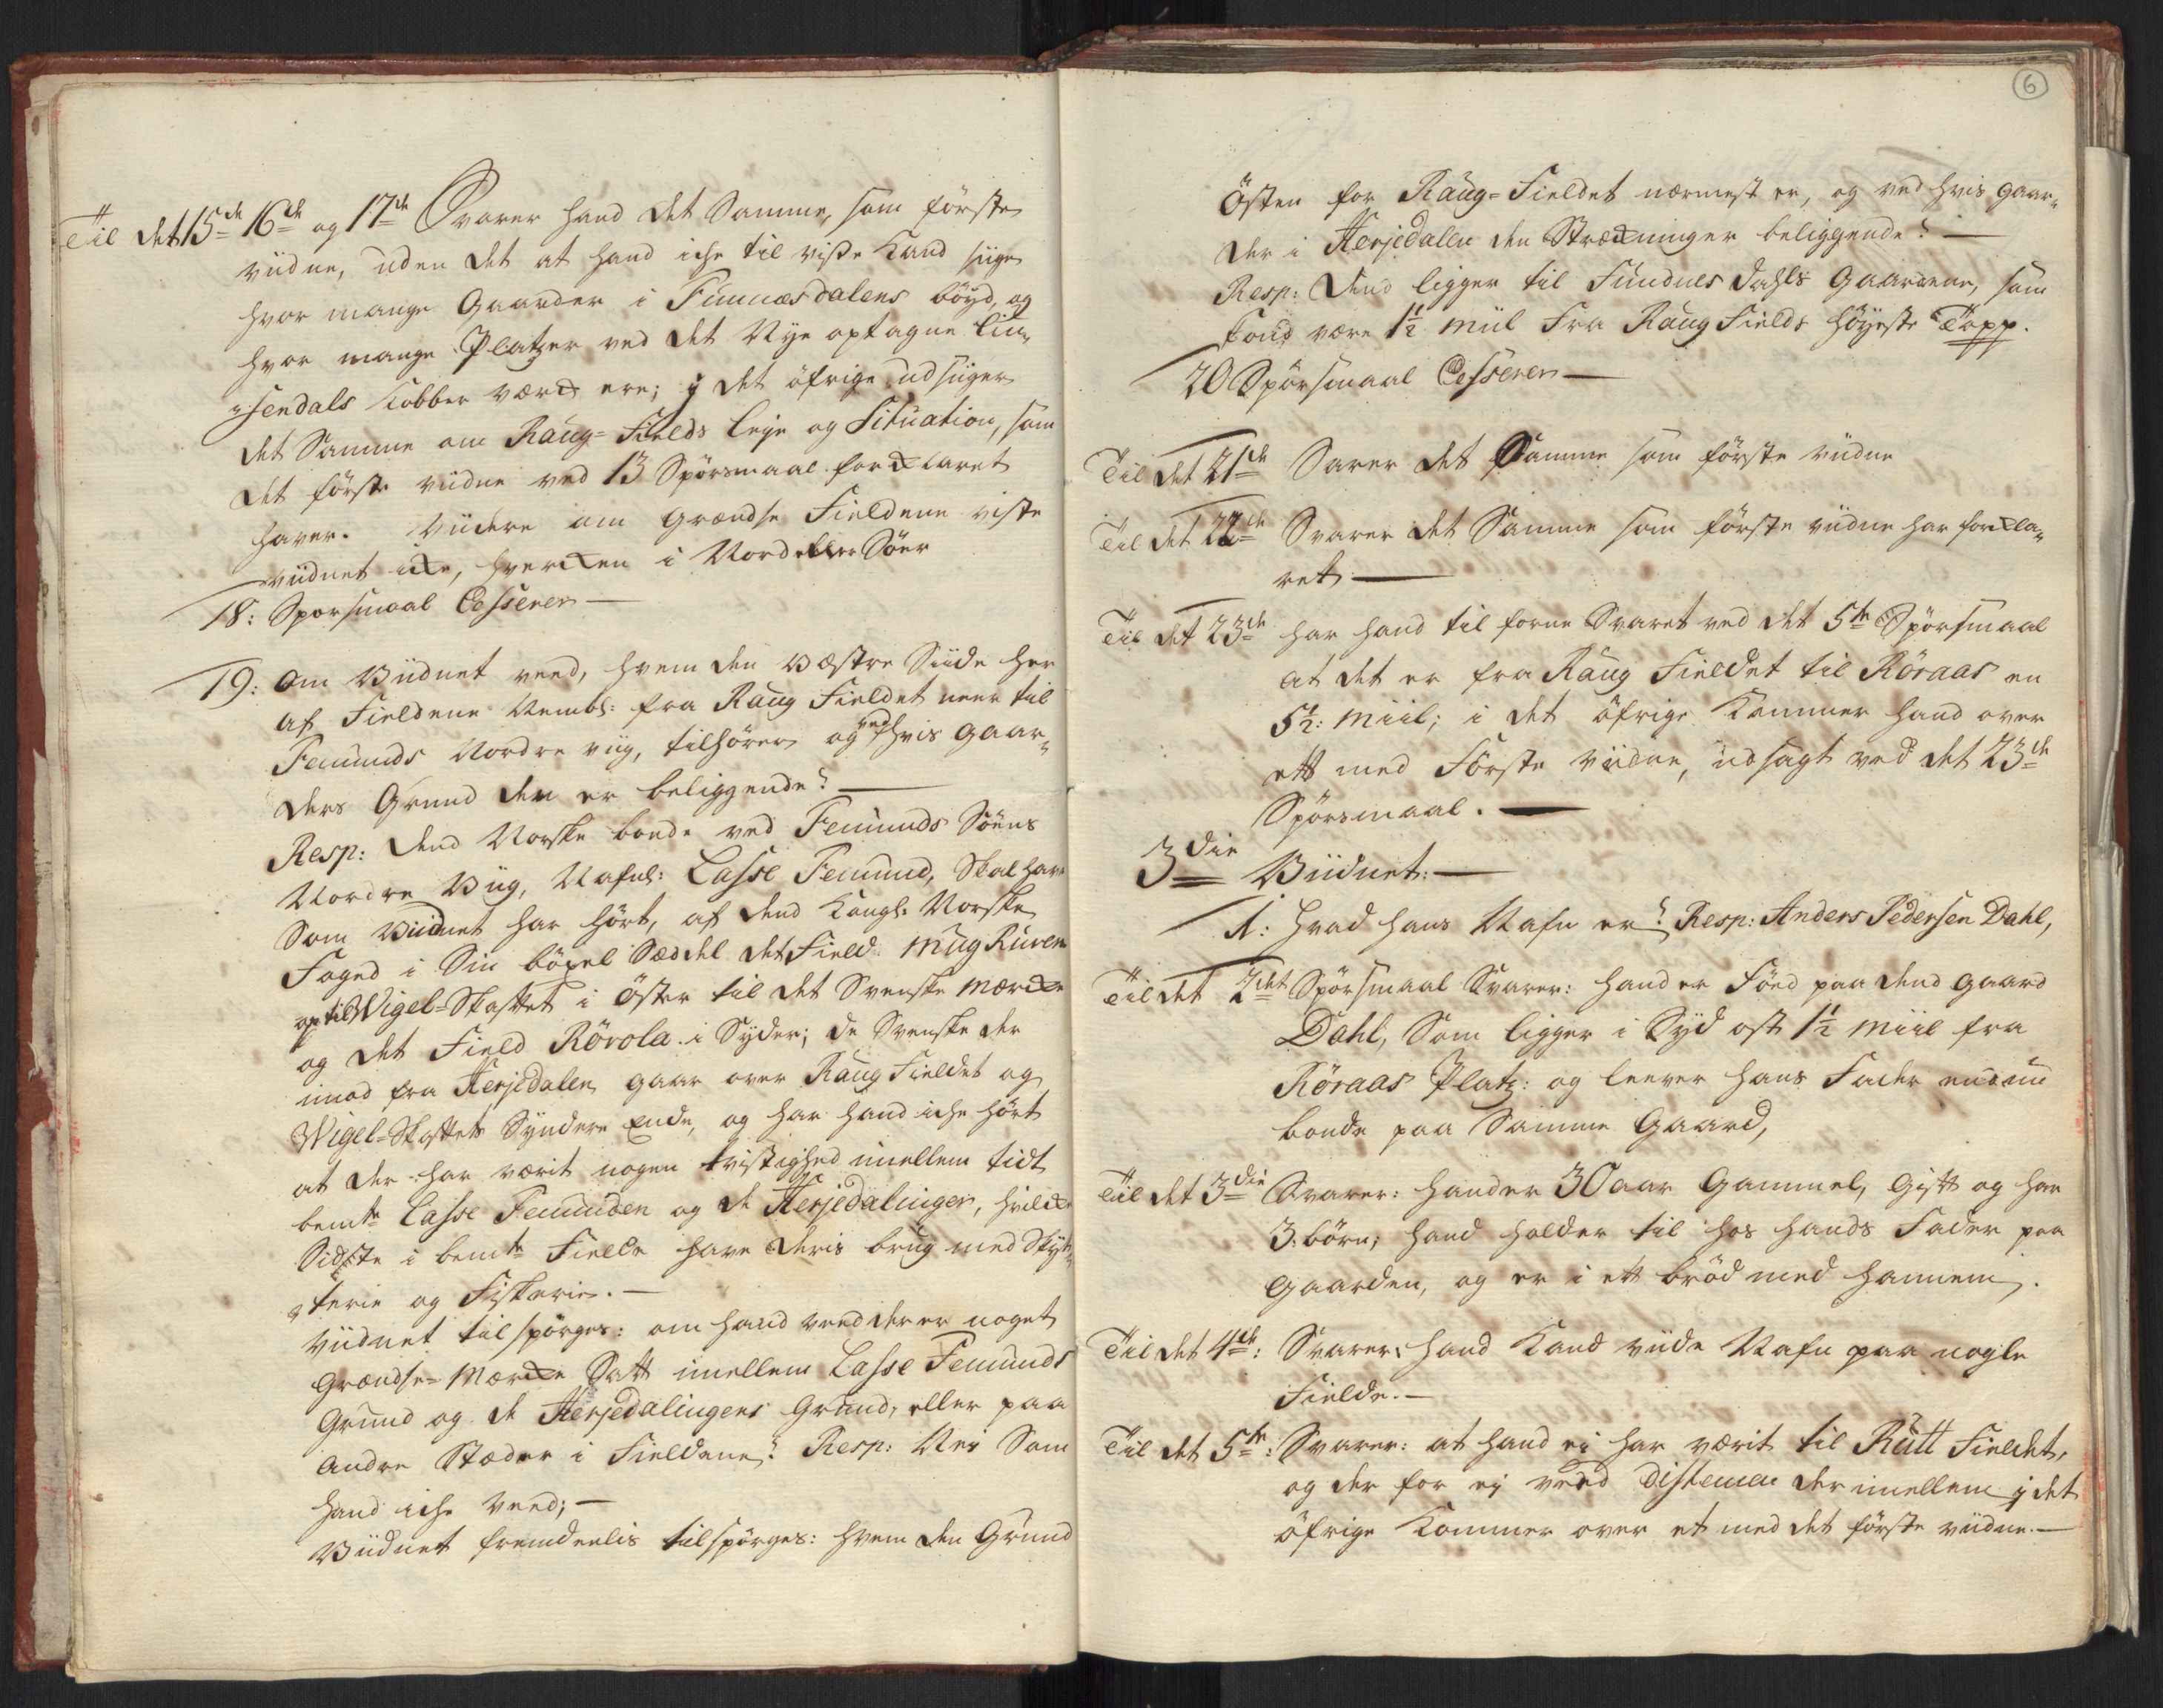 Til det 15de 16de og 17de Svarer hand det Samme, som förste
viidne, uden det at hand iche til visse Kand siige
hvor mange Gaarder i Funnæsdalens böyd, og
hvor mange Platzer ved det Nye optagne Liu-
sendals Kobber værck ere; i det öfrige udsiiger
det Samme om Raug-Fields leje og Situation, som
det förste viidne ved 13 Spörsmaal forcklaret
haver. Viidere om Grændse Fieldene viste
viidnet icke, hvercken i Nord eller Söer
18: Sporsmaal Cesserer —
19: Om Viidnet veed, hvem den Væstre Siide her
af Fieldene Nembl: fra Raug Fieldet neer til
Femunds Nordre viig, tilhörer og ved hvis Gaar-
ders Grund den er beliggende? —
Resp: Dend Norske bonde ved Femunds Söens
Nordre Viig, Nafnl: Lasse Femund, Skal have
Som Viidnet har hört, af dend Kongl: Norske
Foged i Sin böxel Sæddel det Field Mug Ruven
op til Wigel-Skaftet i Öster til det Svenske Mærcke
og det Field Rövola i Syder; de Svenske der
imod fra Herjedalen gaar over Raug Fieldet og
Wigel-Skaftets Syndere Ende, og har hand iche hört
at der har værit nogen tvistighed imellem tidt
bemte Lasse Femunden og de Herjedalinger, hvilcke
Sidste i bemte Fielde have deris brug med Skyt-
terie og Fiskerie. —
Viidnet tilspörges: om hand veed der er noget
Grændse-Mærcke Satt imellem Lasse Femunds
Grund og de Herjedalingers Grund, eller paa
andre Stæder i Fieldene? Resp: Nei Som
hand iche veed; —
Viidnet fremdeelis tilspörges: hvem den Grund
6
Östen for Raug-Fieldet nærmest er, og ved hvis Gaar-
der i Herjedalen den Stræckninger beliggende? —
Resp: Dend ligger til Fundnes Dahls Gaardene, som
Toug være 1½ Miil Fra Raug Fields höyeste Topp.
20 Spörsmaal Cesserer —
Til det 21de Sarer det Samme som förste viidne
Til det 22de Svarer det Samme som förste viidne har forckla-
ret —
Til det 23de har hand til forne Svaret ved det 5te Spörsmaal
at det er fra Raug Fieldet til Röraas en
5½: Miil; i det öfrige Kommer hand over
ett med Förste Viidne, udsagt ved det 23de
Spörsmaal. —
3die Viidnet: —
1: Hvad hans Nafn er? Resp: Anders Pedersen Dahl,
Til det 2det Spörsmaal Svarer: hand er Föed paa dend gaard
Dahl, Som ligger i Syd ost 1½ Miil fra
Röraas Platz: og leever hans Fader end nu
bonde paa Samme Gaard,
Til det 3die Svarer: hand er 30 aar Gammel, Gift og har
3: börn; hand holder til hos hands Fader paa
Gaarden, og er i ett bröd med hannem.
Til det 4de: Svarer: hand Kand viide Nafn paa nogle
Fielde. —
Til det 5te: Svarer: at hand ei har værit til Rutt Fieldet,
og der for ej veed distencen der imellem i det
öfrige Kommer over et med det förste viidne. —